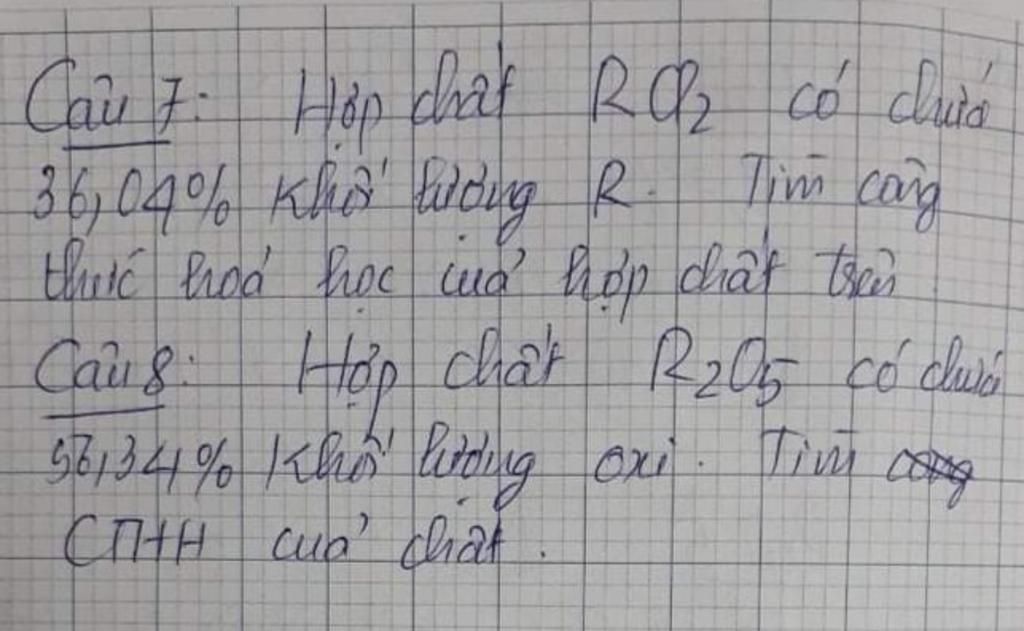 Câu 7: Hợp chất RCl2 có chứa
36,04% khối lượng R. Tìm công
thức hoá học của hợp chất trên
Câu 8: Hợp chất R2O5 có chứa
56,34% khối lượng oxi. Tìm
CTHH của chất.